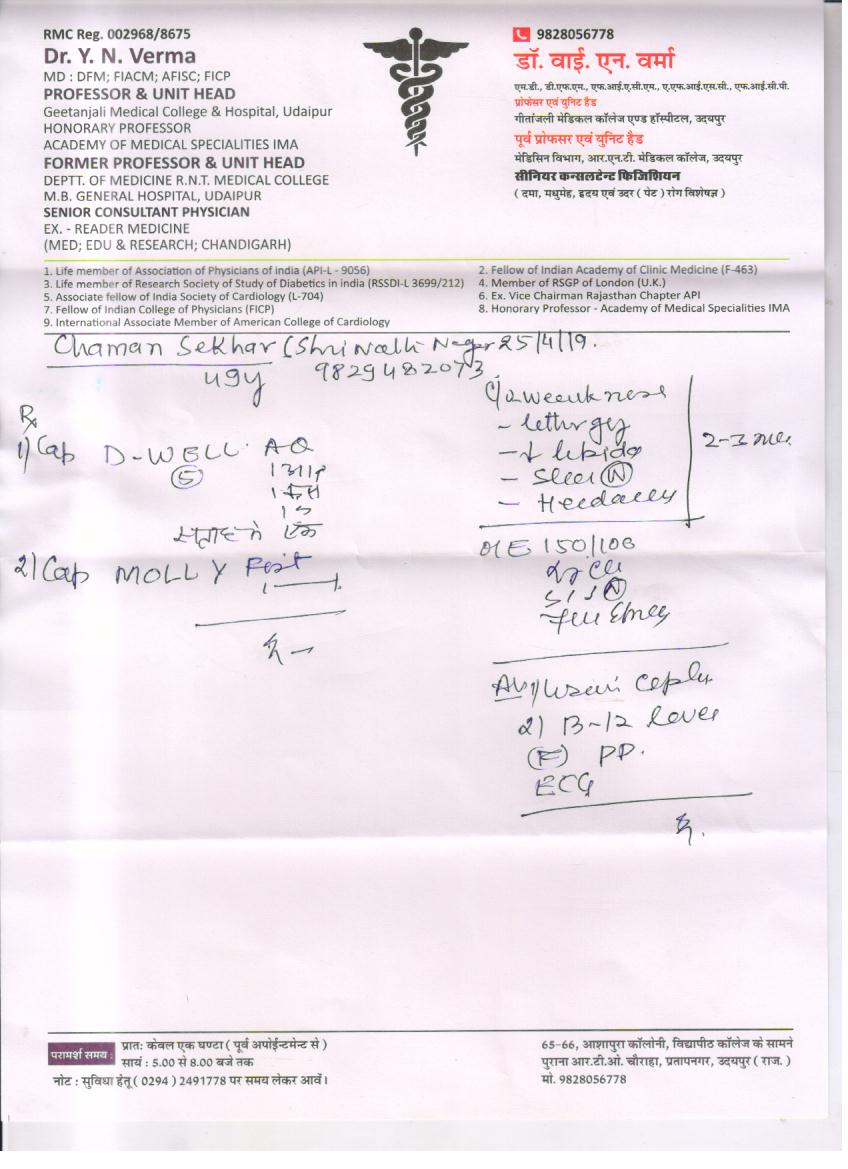 RMC Reg. 002968/8675
Dr. Y. N. Verma
MD : DFM; FIACM; AFISC; FICP
PROFESSOR & UNIT HEAD
Geetanjali Medical College & Hospital, Udaipur
HONORARY PROFESSOR
ACADEMY OF MEDICAL SPECIALITIES IMA
FORMER PROFESSOR & UNIT HEAD
DEPTT. OF MEDICINE R.N.T. MEDICAL COLLEGE
M.B. GENERAL HOSPITAL, UDAIPUR
SENIOR CONSULTANT PHYSICIAN
EX. - READER MEDICINE
(MED; EDU & RESEARCH; CHANDIGARH)
9828056778
डॉ. वाई. एन. वर्मा
एम.डी., डी.एफ.एम., एफ.आई.ए.सी.एम., ए.एफ.आई.एस.सी., एफ.आई.सी.पी.
प्रोफेसर एवं यूनिट हैड
गीतांजली मेडिकल कॉलेज एण्ड हॉस्पीटल, उदयपुर
पूर्व प्रोफसर एवं यूनिट हैड
मेडिसिन विभाग, आर.एन.टी. मेडिकल कॉलेज, उदयपुर
सीनियर कन्सलटेन्ट फिजिशियन
( दमा, मधुमेह, हृदय एवं उदर ( पेट ) रोग विशेषज्ञ )
1. Life member of Association of Physicians of india (API-L - 9056)
2. Fellow of Indian Academy of Clinic Medicine (F-463)
3. Life member of Research Society of Study of Diabetics in india (RSSDI-L 3699/212)
4. Member of RSGP of London (U.K.)
5. Associate fellow of India Society of Cardiology (L-704)
6. Ex. Vice Chairman Rajasthan Chapter API
7. Fellow of Indian College of Physicians (FICP)
8. Honorary Professor - Academy of Medical Specialities IMA
9. International Associate Member of American College of Cardiology
Chaman Sekhar (Shri Nath Nagar 25/4/19.
49y 9829482073
Rx
1) Cap D-WELL AQ
5
सप्ताह में एक
2) Cap MOLLY
C/o weeukness
- lethurgy
- ↓ libido
- Sleer N
- Heedacey
2-3
O/E 150/100
2) B-12 lever
(F) PP.
ECG
परामर्श समय :
प्रातः केवल एक घण्टा ( पूर्व अपोईन्टमेन्ट से )
सायं : 5.00 से 8.00 बजे तक
नोट : सुविधा हेतु ( 0294 ) 2491778 पर समय लेकर आवें।
65-66, आशापुरा कॉलोनी, विद्यापीठ कॉलेज के सामने
पुराना आर.टी.ओ. चौराहा, प्रतापनगर, उदयपुर ( राज. )
मो. 9828056778